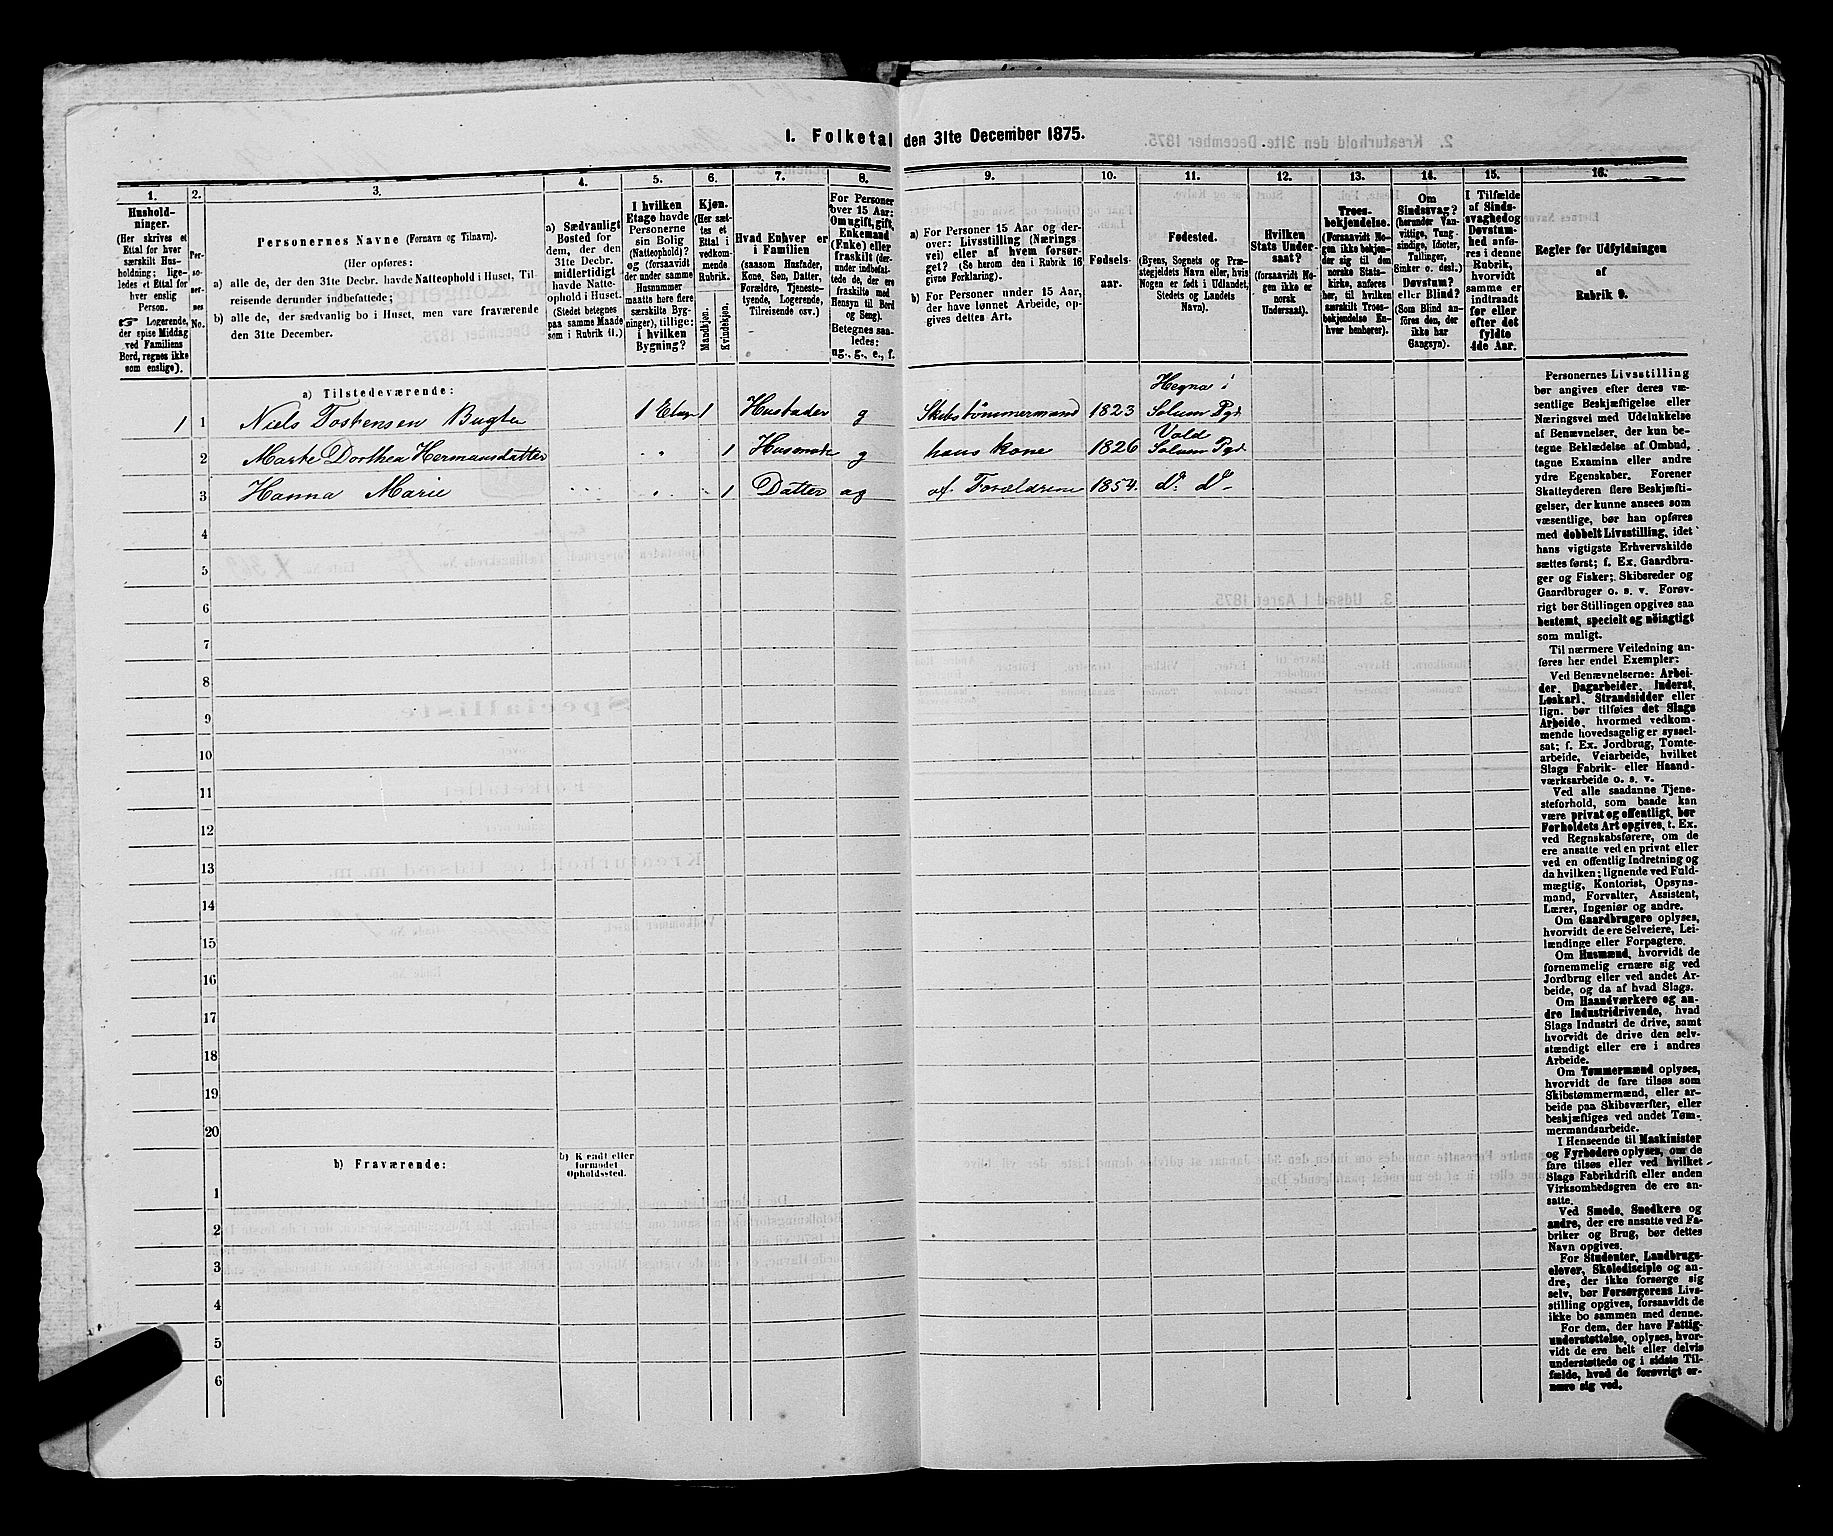 1. Folketal den 31te December 1875.
1.
Hushold-
ninger.
(Her skrives et
Ettal for hver
særskilt Hus-
holdning; lige-
ledes et Ettal for
hver enslig
Person.
☞ Logerende,
der spise Middag
ved Familiens
Bord, regnes ikke
som enslige).
2.
Per-
so-
ner-
nes
No.
3.
Personernes Navne (Fornavn og Tilnavn).
(Her opføres:
a) alle de, der den 31te Decbr. havde Natteophold i Huset, Til-
reisende derunder indbefattede;
b) alle de, der sædvanlig bo i Huset, men vare fraværende
den 31te December.
4.
a) Sædvanligt
Bosted for
dem, der den
31te Decbr.
midlertidigt
havde Natte-
ophold i Huset.
(Stedet betegnes
paa samme Maade
som i Rubrik 11.)
5.
I hvilken
Etage havde
Personerne
sin Bolig
(Natteophold)?
og (forsaavidt
der under samme
Husnummer
maatte høre flere
særskilte Byg-
ninger), tillige:
i hvilken
Bygning?
6.
Kjøn.
(Her sæt-
tes et
Ettal i
vedkom-
mende
Rubrik.
Mandkjøn.
Kvindekjøn.
7.
Hvad Enhver er
i Familien
(saasom Husfader,
Kone, Søn, Datter,
Forældre, Tjeneste-
tyende, Logerende,
Tilreisende osv.)
8.
For Personer
over 15 Aar:
Om ugift, gift,
Enkemand
(Enke) eller
fraskilt (der-
under indbefat-
tede de, der ere
fraskilte med
Hensyn til Bord
og Seng).
Betegnes saa-
ledes:
ug., g., e., f.
9.
a) For Personer 15 Aar og der-
over: Livsstilling (Nærings
vei) eller af hvem forsør-
get? (Se herom den i Rubrik 16
givne Forklaring).
b) For Personer under 15 Aar,
der have lønnet Arbeide, op-
gives dettes Art.
10.
Fødsels-
aar.
11.
Fødested.
(Byens, Sognets og Præ-
stegjeldets Navn eller, hvis
Nogen er født i Udlandet,
Stedets og Landets
Navn).
12.
Hvilken
Stats Under-
saat?
(forsaavidt No-
gen ikke er
norsk
Undersaat).
13.
Troes-
bekjendelse.
(Forsaavidt No-
gen ikke bekjen-
der sig til den
norske Stats-
kirke, anføres
her, til hvilken
særskilt Troes-
bekjendelse En-
hver benhører).
14.
Om
Sindssvag?
(herunder Van-
vittige, Tung-
sindige, Idioter,
Tullinger,
Sinker o. desl.)
Døvstum?
eller Blind?
(Som Blind an-
føres den, der
ikke har
Gangsyn).
15.
I Tilfælde
af Sinds-
svaghed og
Døvstum-
hed anfø-
res i denne
Rubrik,
hvorvidt
samme er
indtraadt
før eller
efter det
fyldte
4de Aar.
16.
Regler for Udfyldningen
af
Rubrik 9.
a) Tilstedeværende:
1 1 Niels Tostensen Bugta 1 Etage 1 Husfader g Skibstømmermand 1823 Hegna i Solum Pgd
2 Marte Dorthea Hermansdatter " 1 Husmoder g hans kone 1826 Vold Solum Pgd
3 Hanna Marie " 1 Datter ug af Forældrene 1854. do do
4
5
6
7
8
9
10
11
12
13
14
15
16
17
18
19
20
b) Fraværende:
b) Kjendt eller
formodet
Opholdssted.
1
2
3
4
5
6
Personernes Livsstilling
bør angives efter deres væ-
sentlige Beskjæftigelse eller
Næringsvei med Udelukkelse
af Benævnelser, der kun be-
tegne Beklædelse af Ombud,
tagne Examina eller andre
ydre Egenskaber. Forener
Skatteyderen flere Beskjæfti-
gelser, der kunne ansees som
væsentlige, bør han opføres
med dobbelt Livsstilling, idet
hans vigtigste Erhvervskilde
sættes først; f. Ex. Gaardbru-
ger og Fisker; Skibsreder og
Gaardbruger o. s. v. Forøv-
rigt bør Stillingen opgives saa
bestemt, specielt og nöiagtigt
som muligt.
Til nærmere Veiledning an-
føres her endel Exempler:
Ved Benævnelserne: Arbei-
der, Dagarbeider, Inderst,
Løskarl, Strandsidder eller
lign. bør tilføies det Slags
Arbeide, hvormed vedkom-
mende hovedsagelig er syssel-
sat; f. Ex. Jordbrug, Tomte-
arbeide, Veiarbeide, hvilket
Slags Fabrik- eller Haand-
værksarbeide o. s. v.
Ved alle saadanne Tjene-
steforhold, som baade kan
være privat og offentligt, bør
Forholdets Art opgives, t. Ex.
ved Regnskabsførere, om de
ere ansatte ved en privat eller
ved en offentlig Indretning og
da hvilken; lignende ved Fuld-
mægtig, Kontorist, Opsyns-
mand, Forvalter, Assistent,
Lærer, Ingeniør og andre.
Om Gaardbrugere oplyses,
hvorvidt de ere Selveiere, Lei-
lændinge eller Forpagtere.
Om Husmænd, hvorvidt de
fornemmelig ernære sig ved
Jordbrug eller ved andet Ar-
beide, og da af hvad Slags.
Om Haandværkere og an-
dre Industridrivende, hvad
Slags Industri de drive, samt
hvorvidt de drive den selv-
stændigt eller ere i andres
Arbeide.
Om Tømmermænd oplyses,
hvorvidt de fare tilsøs som
Skibstømmermænd, eller ar-
beide paa Skibsværfter, eller
beskjæftiges ved andet Tøm-
mermandsarbeide.
I Henseende til Maskinister
og Fyrbødere oplyses, om de
fare tilsøs eller ved hvilket
Slags Fabrikdrift eller anden
Virksomhedsgren de ere an-
satte.
Ved Smede, Snedkere og
andre, der ere ansatte ved Fa-
briker og Brug, bør dettes
Navn opgives.
For Studenter, Landbrugs-
elever, Skoledisciple og an-
dre, der ikke forsørge sig
selv, bør Forsørgerens Livs-
stilling opgives, forsaavidt de
ikke bo sammen med denne.
For dem, der have Fattig-
understøttelse, oplyses, hvor-
vidt de ere helt eller delvis
understøttede og i sidste Til-
fælde, hvad de forøvrigt er-
nære sig ved.